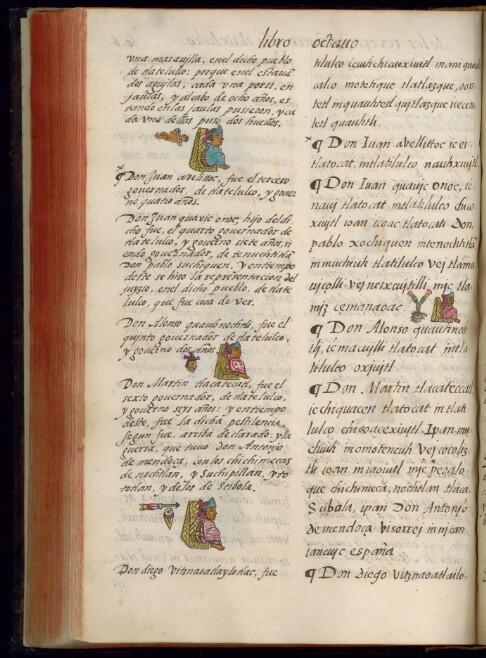 libro octauo
vna marauilla, en el dicho pueblo
de tlatelulco: porque en el estauã
dos aguilas, cada vna por si, en
jaulas, y al cabo de ocho años, es
tando en las jaulas pusieron, y ca
da vna dellas puso dos hueuos.
¶ Don Juan auelittoc, fue el tercero
gouernador, de tlatelulco, y gouer
no quatro años.
Don Juan quauic onoc, hijo del di
cho fue, el quarto gouernador de
tlatelulco, y gouerno siete años, si
endo gouernador, de tenuchtitlã
Don pablo suchiquen. y en tiempo
deste se hizo la representacion del
juyzio, en el dicho pueblo, de tlate
lulco, que fue cosa de ver.
Don Alonso quauhnochtli, fue el
quinto gouernador de tlatelulco,
y gouerno dos años.
Don Martin tlacatecatl, fue el
sexto gouernador, de tlatelulco,
y gouerno seys años: y en tiempo
deste, fue la dicha pestilencia,
segun fue, arriba declarado: y la
guerra, que tuuo Don Antonio
de mendoca, con los chichimecas
de nochtlan, y Suchipillan, y to
totlan, y de los de Sibola.
Don diego Vitznaoatlaylotlac, fue
tilulco
calco motenque tlatlazque, oon
tetl in quauhtetl quitlazque cecen
tetl quauhtli.
¶ Don Iuan avelittoc ic ei
tlatocat, in tlatilulco nauhxiuitl
¶ Don Iuan quauic onoc, ic
naui tlatocat in tlatilulco chico
xiuitl ioan icoac tlatocati Don
pablo xochiquen in tenochtitlã
in muchiuh tlatilulco vei tlama
uiçolli
mjz cemanaoac.
¶ Don Alonso quauhno
tli, ic macuilli tlatocat in tla
tilulco oxiuitl.
¶ Don Martin tlacateccatl
ic chiquacen tlatocat in tlati
lulco chicoacexiuitl. Ipan mu
chiuh in omoteneuh vei cocoliz
tli ioan in iaoiutl
que chichimeca, nochtlan tlaca,
Sibala, ipan Don Antonjo
De mendoça Visorrei in nican
iancujc españa
¶ Don Diego vitznaoatlailo